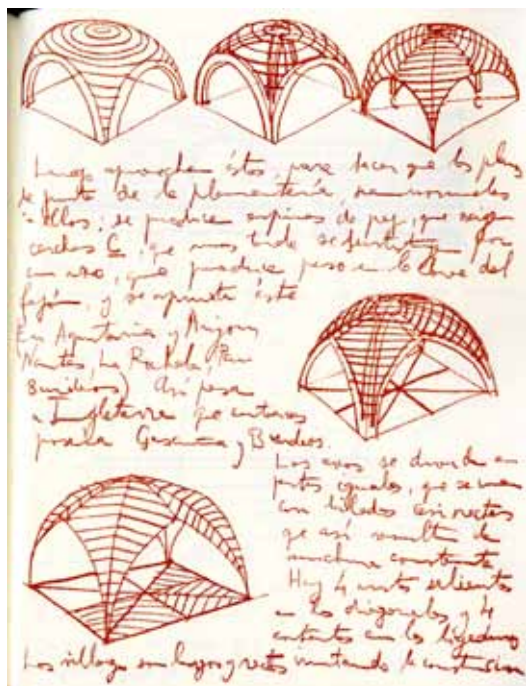 Luego aprovechan éstos, para hacer que los planos
de junta de la plementería, sean normales
a ellos; se producen espinas de pez, que exigen
cerchas C, que mas tarde se sustituyen por
un arco, que produce peso en la clave del
fajón, y se apunta éste
En Aquitania y Anjou
(Nantes, La Rochela,
Burdeos) Así pasa
a Inglaterra que entonces
poseía Gascuña y Burdeos.
Los arcos se dividen en
partes iguales, que se unen
con hiladas casi rectas
que así resultan de
anchura constante
Hay 4 aristas salientes
en las diagonales y 4
entrantes con los ligeduras
Los sillares son largos y rectos imitando la construcción